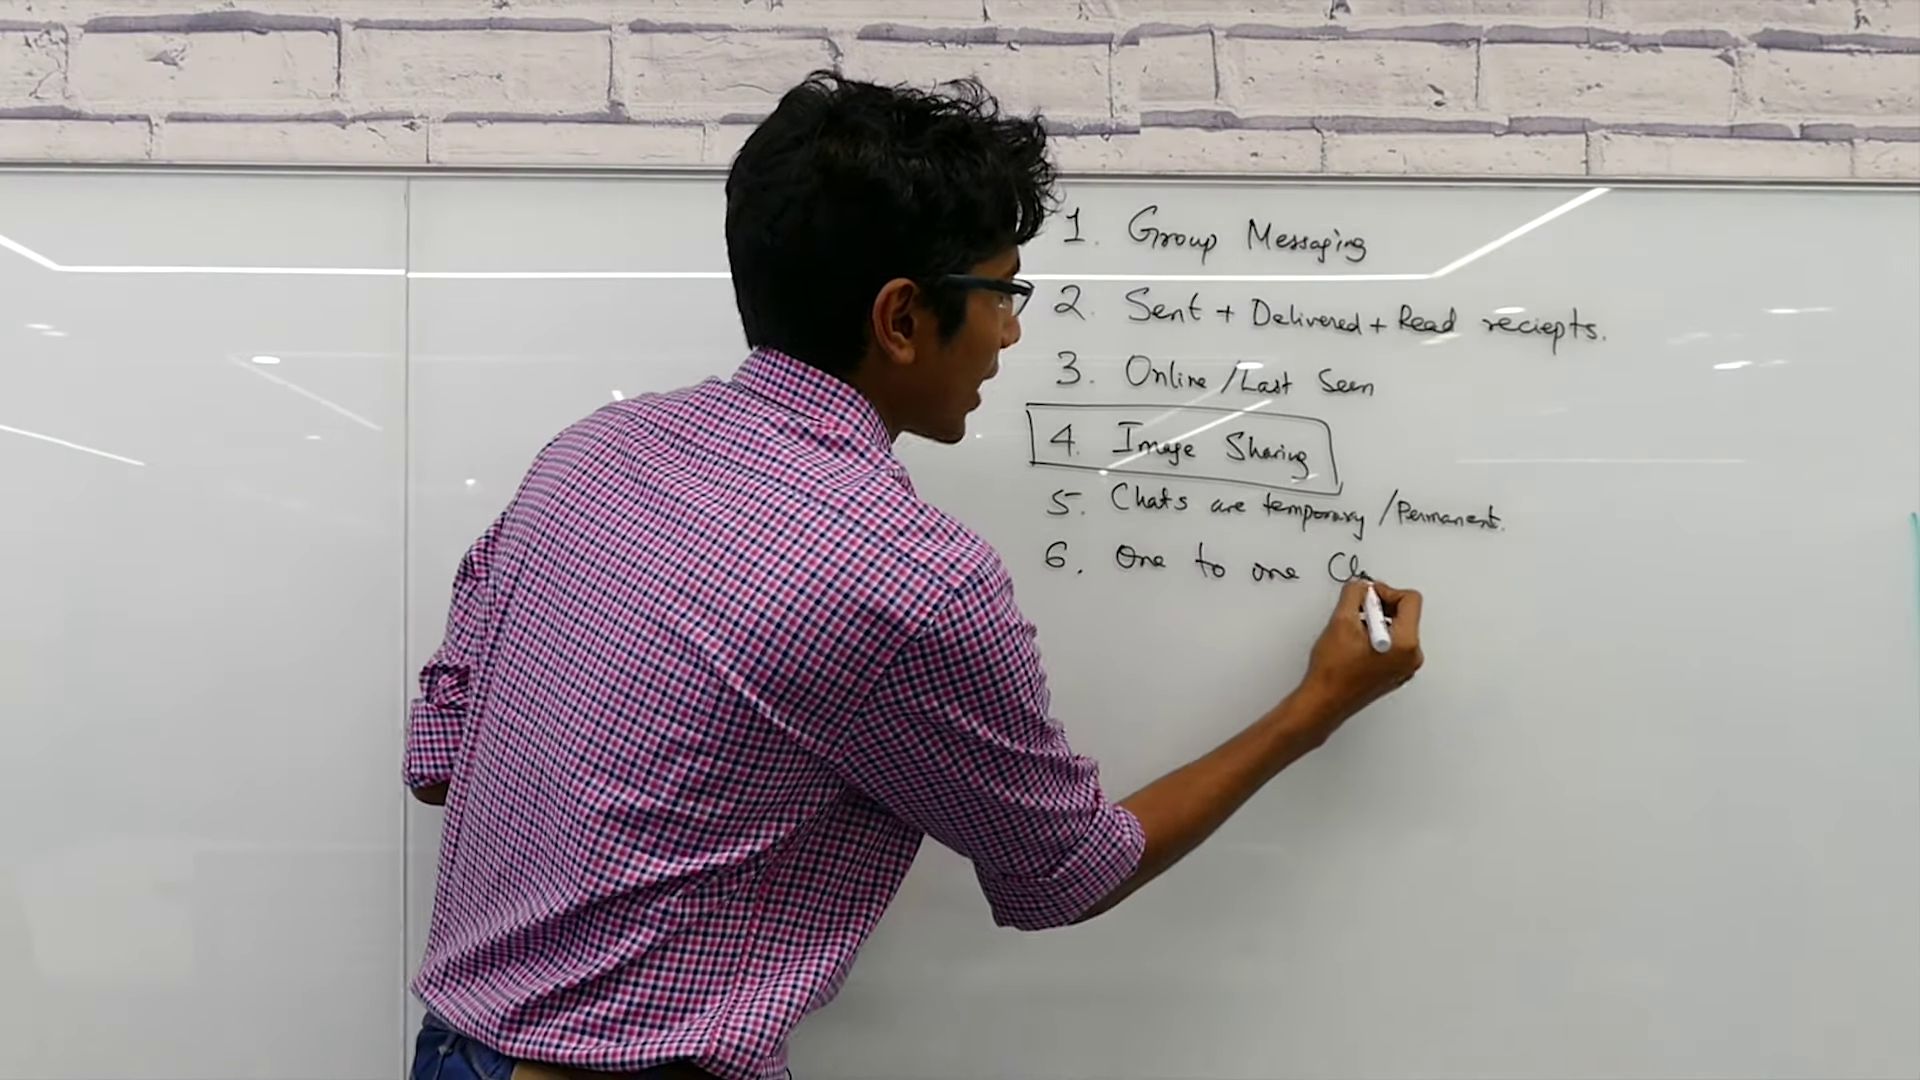 1. Group Messaging
2. Sent + Delivered + Read reciepts.
3. Online / Last Seen
4. Image Sharing
5. Chats are temporary / Permanent.
6. One to one